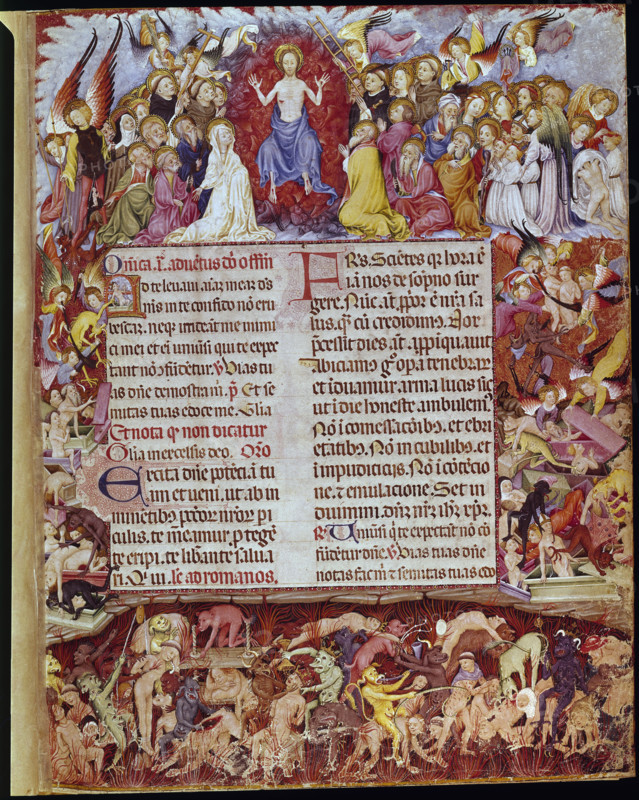 Onica .I. aduetus dni offm
d te leuaui aiaz meaz ds
ms in te confido no eru
bescaz. neqz irrideant me inimi
ci mei et ei uniusi qui te expec
tant no ↄfudetur. V Vias tu
as dne demostra m. p Et se
mitas tuas edoce me. Glia
Et nota q non dicatur
Glia in excelsis deo. Oro
Excita dne poteciaz tu
am et ueni. ut ab in
minetibz pctor nror pi
culis. te meamur. ptegete
te eripi. te libante salua
ri. Q ui. le ad romanos.
FRs. Scietes qr hora e
ia nos de sopno sur
gere. Nuc aut ppor e nra sa
lus. q cu credidimus. Nox
pcessit dies aut appiquauit
abiciams go opa tenebrar
et iduamur arma lucis sic
ut i die honeste ambulem9.
No i comessacoibz. et ebri
etatibz. No in cubilibz. et
impudiciciis. No i cotecio
ne. et emulacione. Set in
duimini. dnm nrm ihm xpm.
R Uniusi q te expectat no co
fudetur dne. V Vias tuas dne
notas fac m et semitas tuas edo